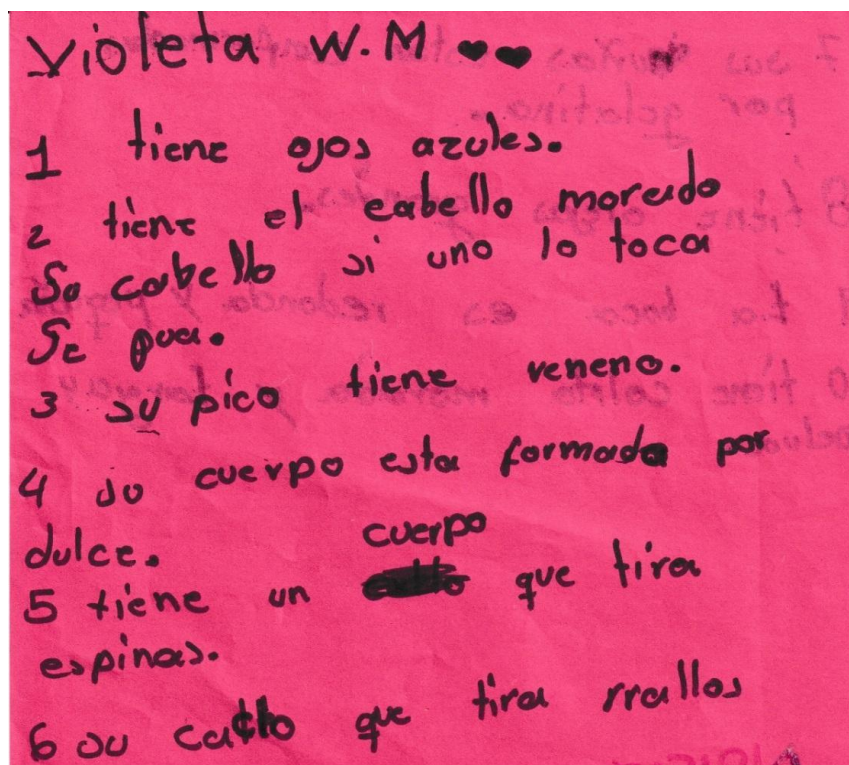 Violeta W.M
1 tiene ojos azules.
2 tiene el cabello morado
Su cabello si uno lo toca
Se pua.
3 su pico tiene veneno.
4 su cuerpo esta formada por
dulce.
cuerpo
5 tiene un que tira
espinas.
6 su que tira rrallos